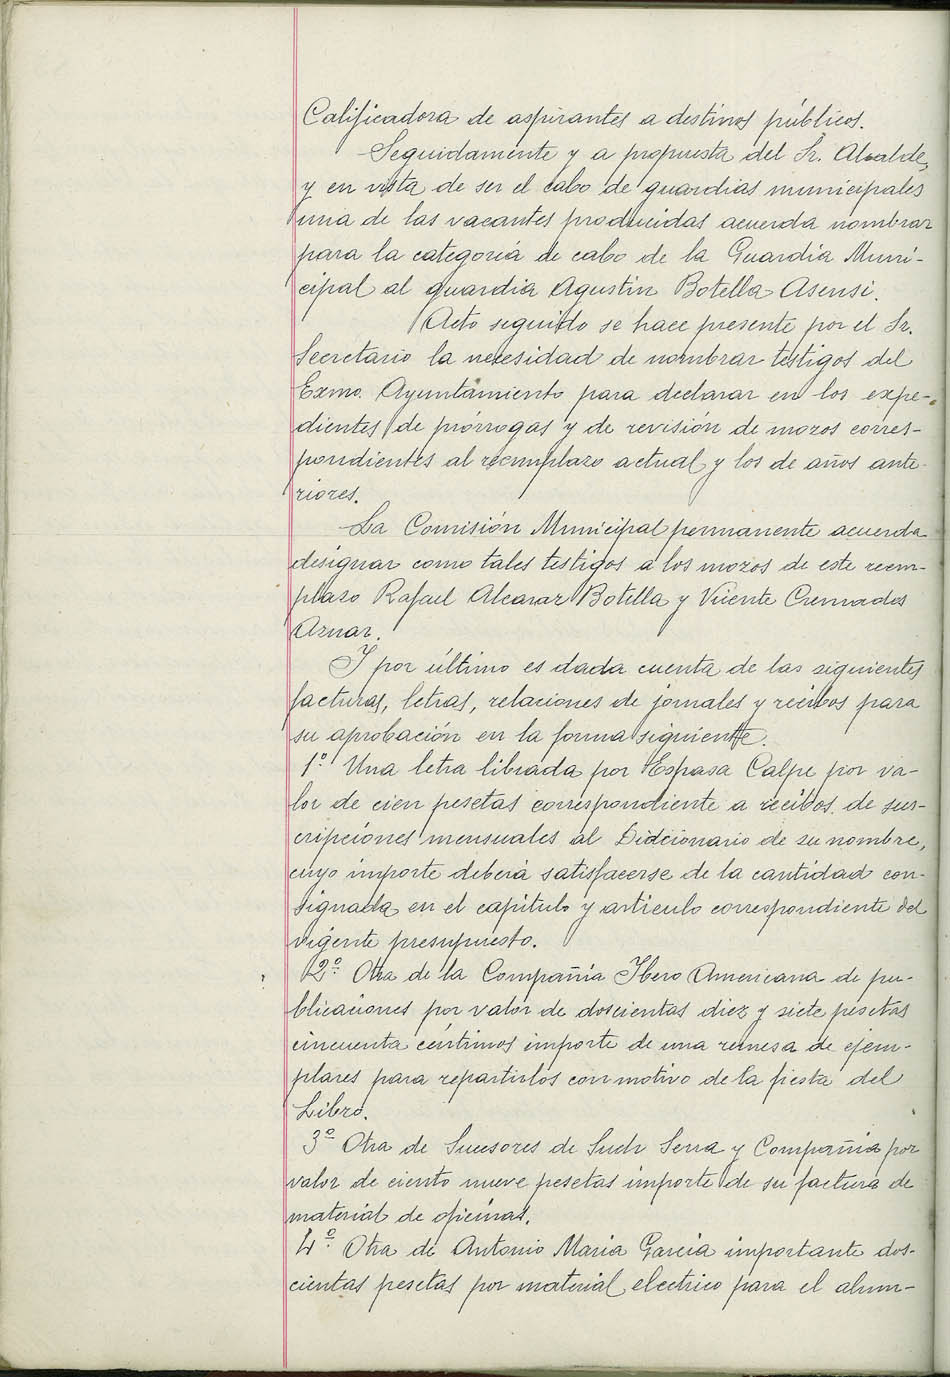 Calificadora de aspirantes a destinos públicos.
Seguidamente y a propuesta del Sr. Alcalde,
y en vista de ser el cabo de guardias municipales
una de las vacantes producidas acuerda nombrar
para la categoría de cabo de la Guardia Muni-
cipal al guardia Agustín Botella Asensi.
Acto seguido se hace presente por el Sr.
Secretario la necesidad de nombrar testigos del
Exmo. Ayuntamiento para declarar en los expe-
dientes de prórrogas y de revisión de mozos corres-
pondientes al reemplazo actual y los de años ante-
riores.
La Comisión Municipal permanente acuerda
designar como tales testigos a los mozos de este reem-
plazo Rafael Alcaraz Botella y Vicente Cremades
Aznar.
Y por último es dada cuenta de las siguientes
facturas, letras, relaciones de jornales y recibos para
su aprobación en la forma siguiente.
1º. Una letra librada por Espasa Calpe por va-
lor de cien pesetas correspondiente a recibos de sus-
cripciones mensuales al Didcionario de su nombre,
cuyo importe deberá satisfacerse de la cantidad con-
signada en el capítulo y artículo correspondiente del
vigente presupuesto.
2º. Otra de la Compañía Ibero Americana de pu-
blicaciones por valor de doscientas diez y siete pesetas
cincuenta céntimos importe de una remesa de ejem-
plares para repartirlos con motivo de la fiesta del
Libro.
3º Otra de Sucesores de Such Serra y Compañía por
valor de ciento nueve pesetas importe de su factura de
material de oficinas.
4º. Otra de Antonio María García importante dos-
cientas pesetas por material electrico para el alum-